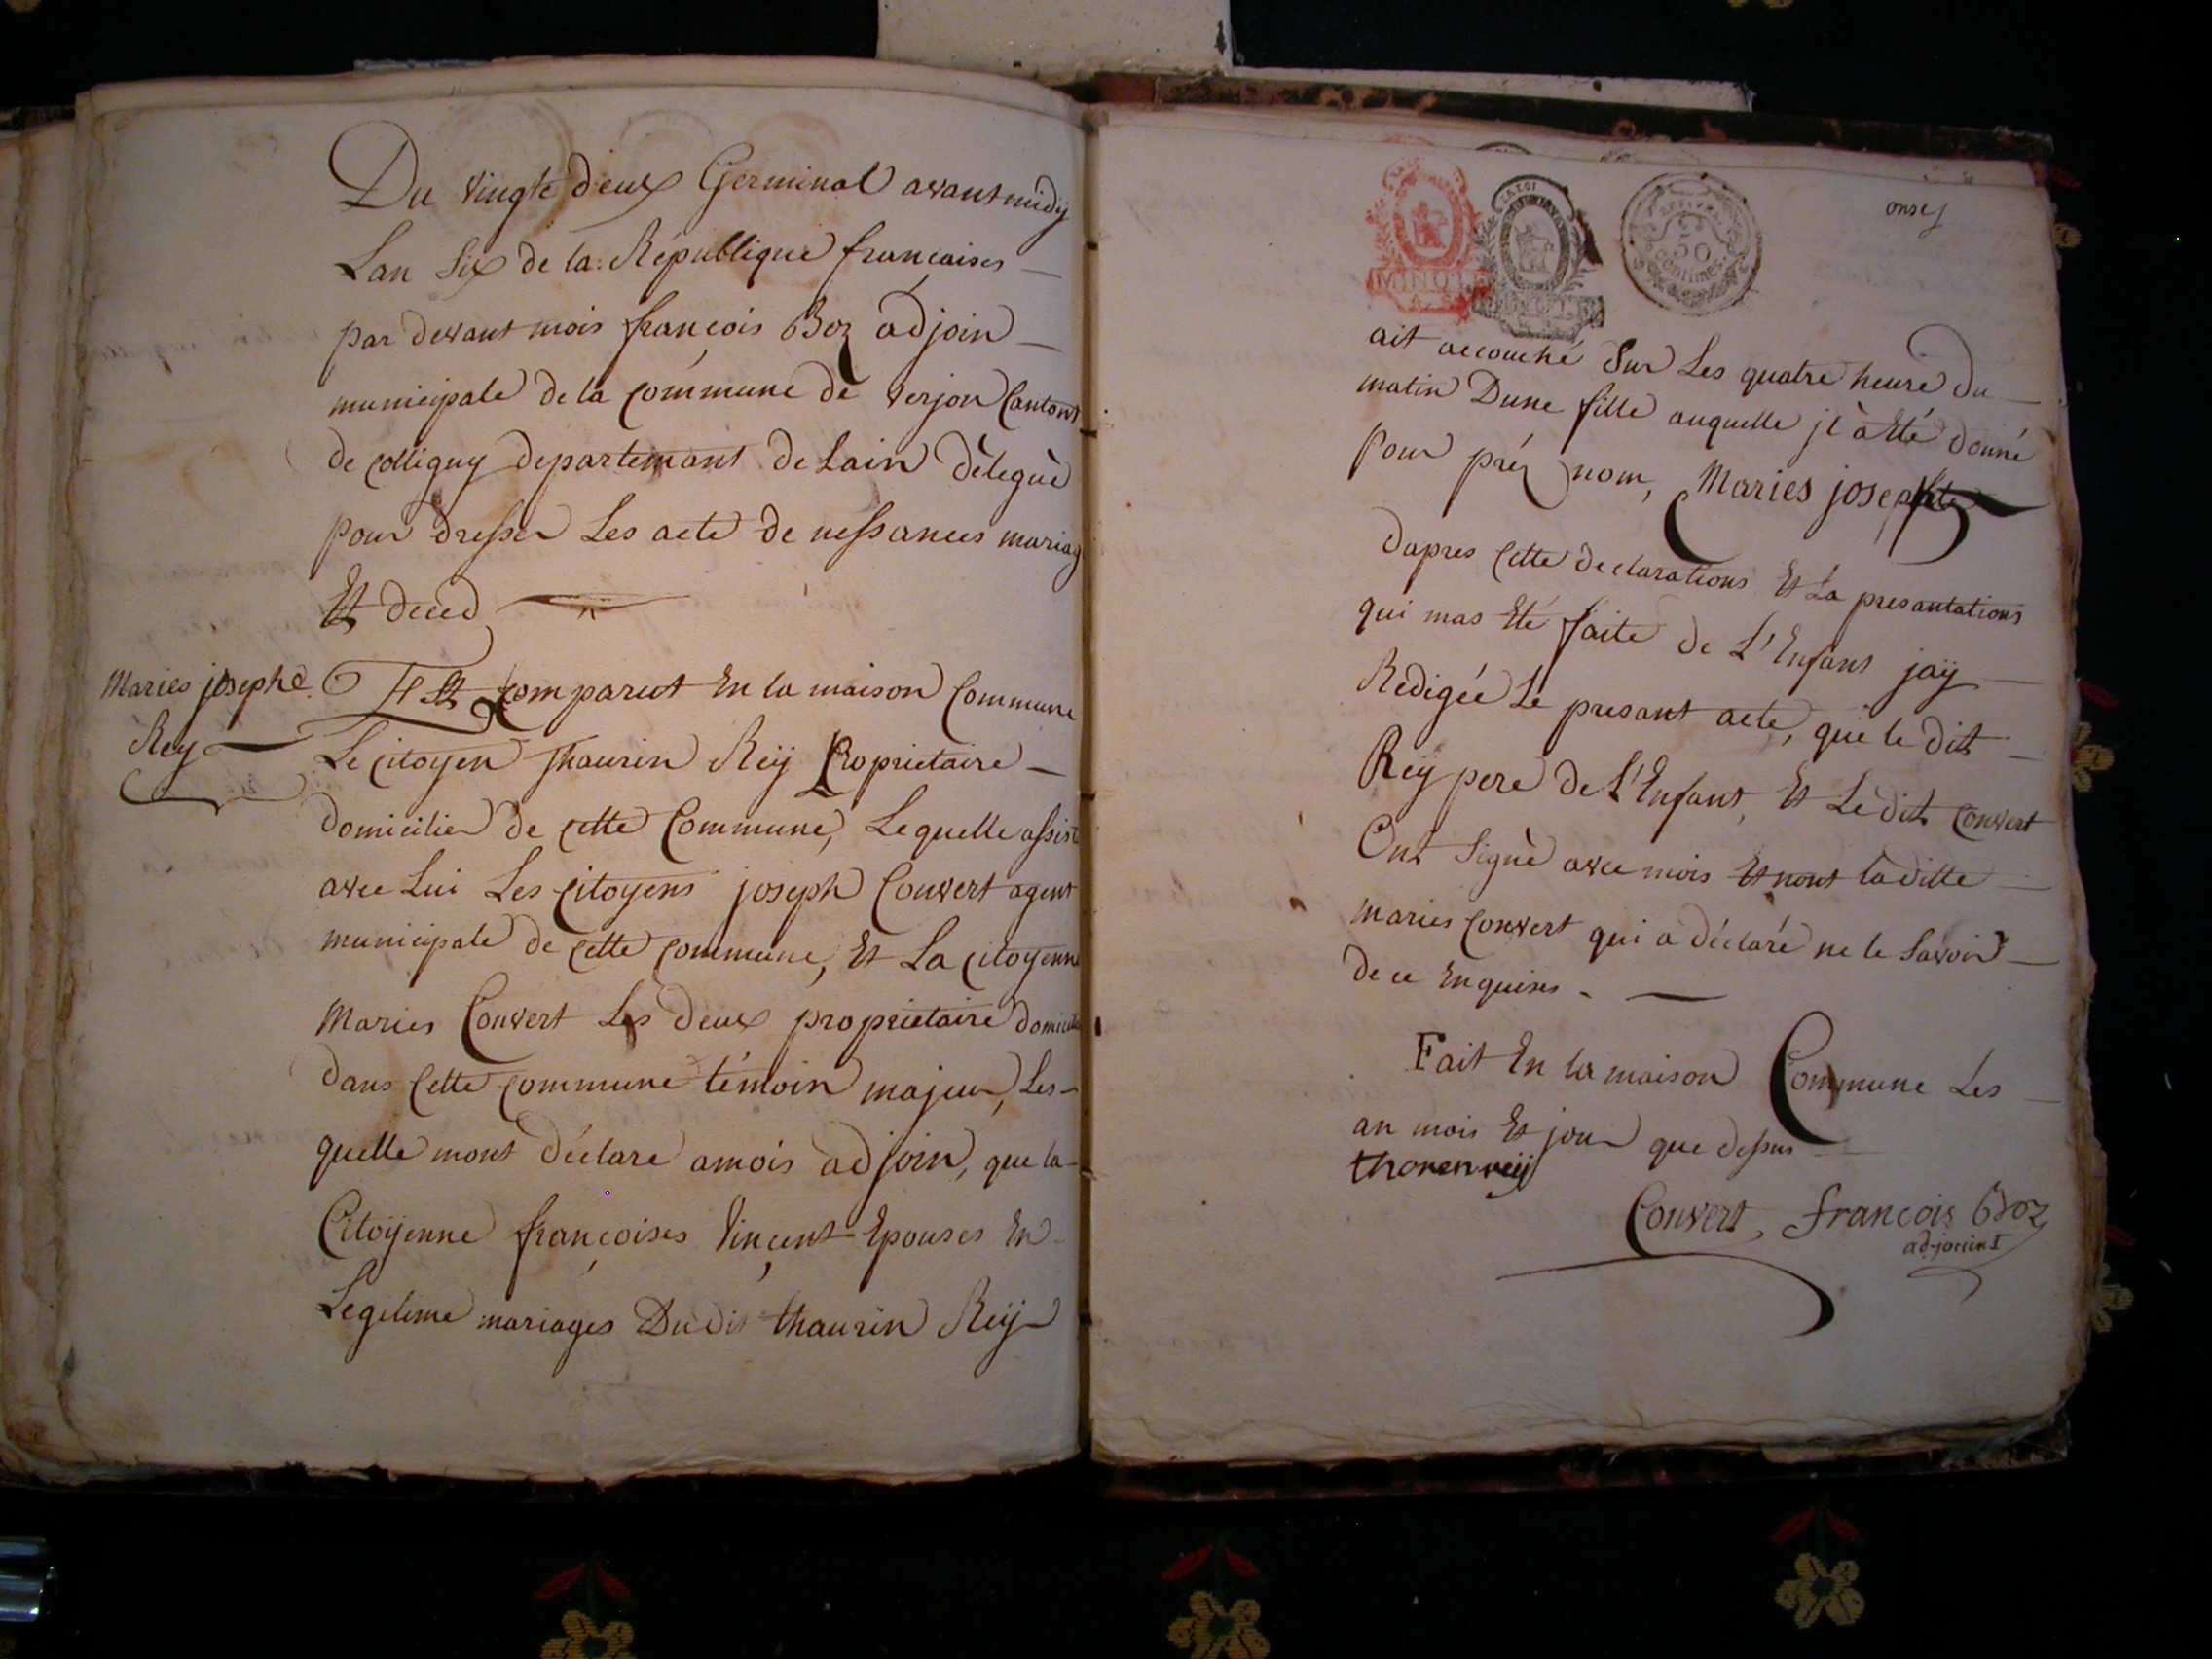 Du vingte deux Germinal avant midÿ
Lan Six de la République françaises
par devant mois françois Boz adjoin
municipale de la Commune de verjon Cantons
de Colligny departemant de Lain délegué
pour dresser Les acte de nessances mariag
Et deced
Maries josephe
Rey
Est Comparut En la maison Commune
Le Citoyen thaurin Reÿ Proprietaire
domicilier de Cette Commune, Le quelle assisté
avec Lui Les Citoyens joseph Convert agent
municipale de Cette Commune, Et La Citoyenne
Maries Convert Les deux proprietaire domicil
dans Cette Commune témoin majeur, Les-
quelle mont déclaré a mois adjoin, que la
Citoÿenne françoises Vincent Epouses En
Legitime mariages Du dit thaurin Reÿ
MINUTE
LA LOI
50
centimes
onze
ait accouché Sur Les quatre heure du
matin Dune fille auquelle jl à Eté donné
pour préz nom, Maries josephte
dapres Cette declarations Et La presantations
qui mas Eté faite de L'Enfant jaÿ
Redigée Le presant acte, que le dit
Reÿ pere de L'Enfant, Et Le dit Convert
Ont Signé avec mois Et nont la ditte
maries Convert qui a déclaré ne le Savoir
de ce Enquises
Fait En la maison Commune Les
an mois Et jour que dessus
thoren reÿ
Convert, françois Boz
ad-joint